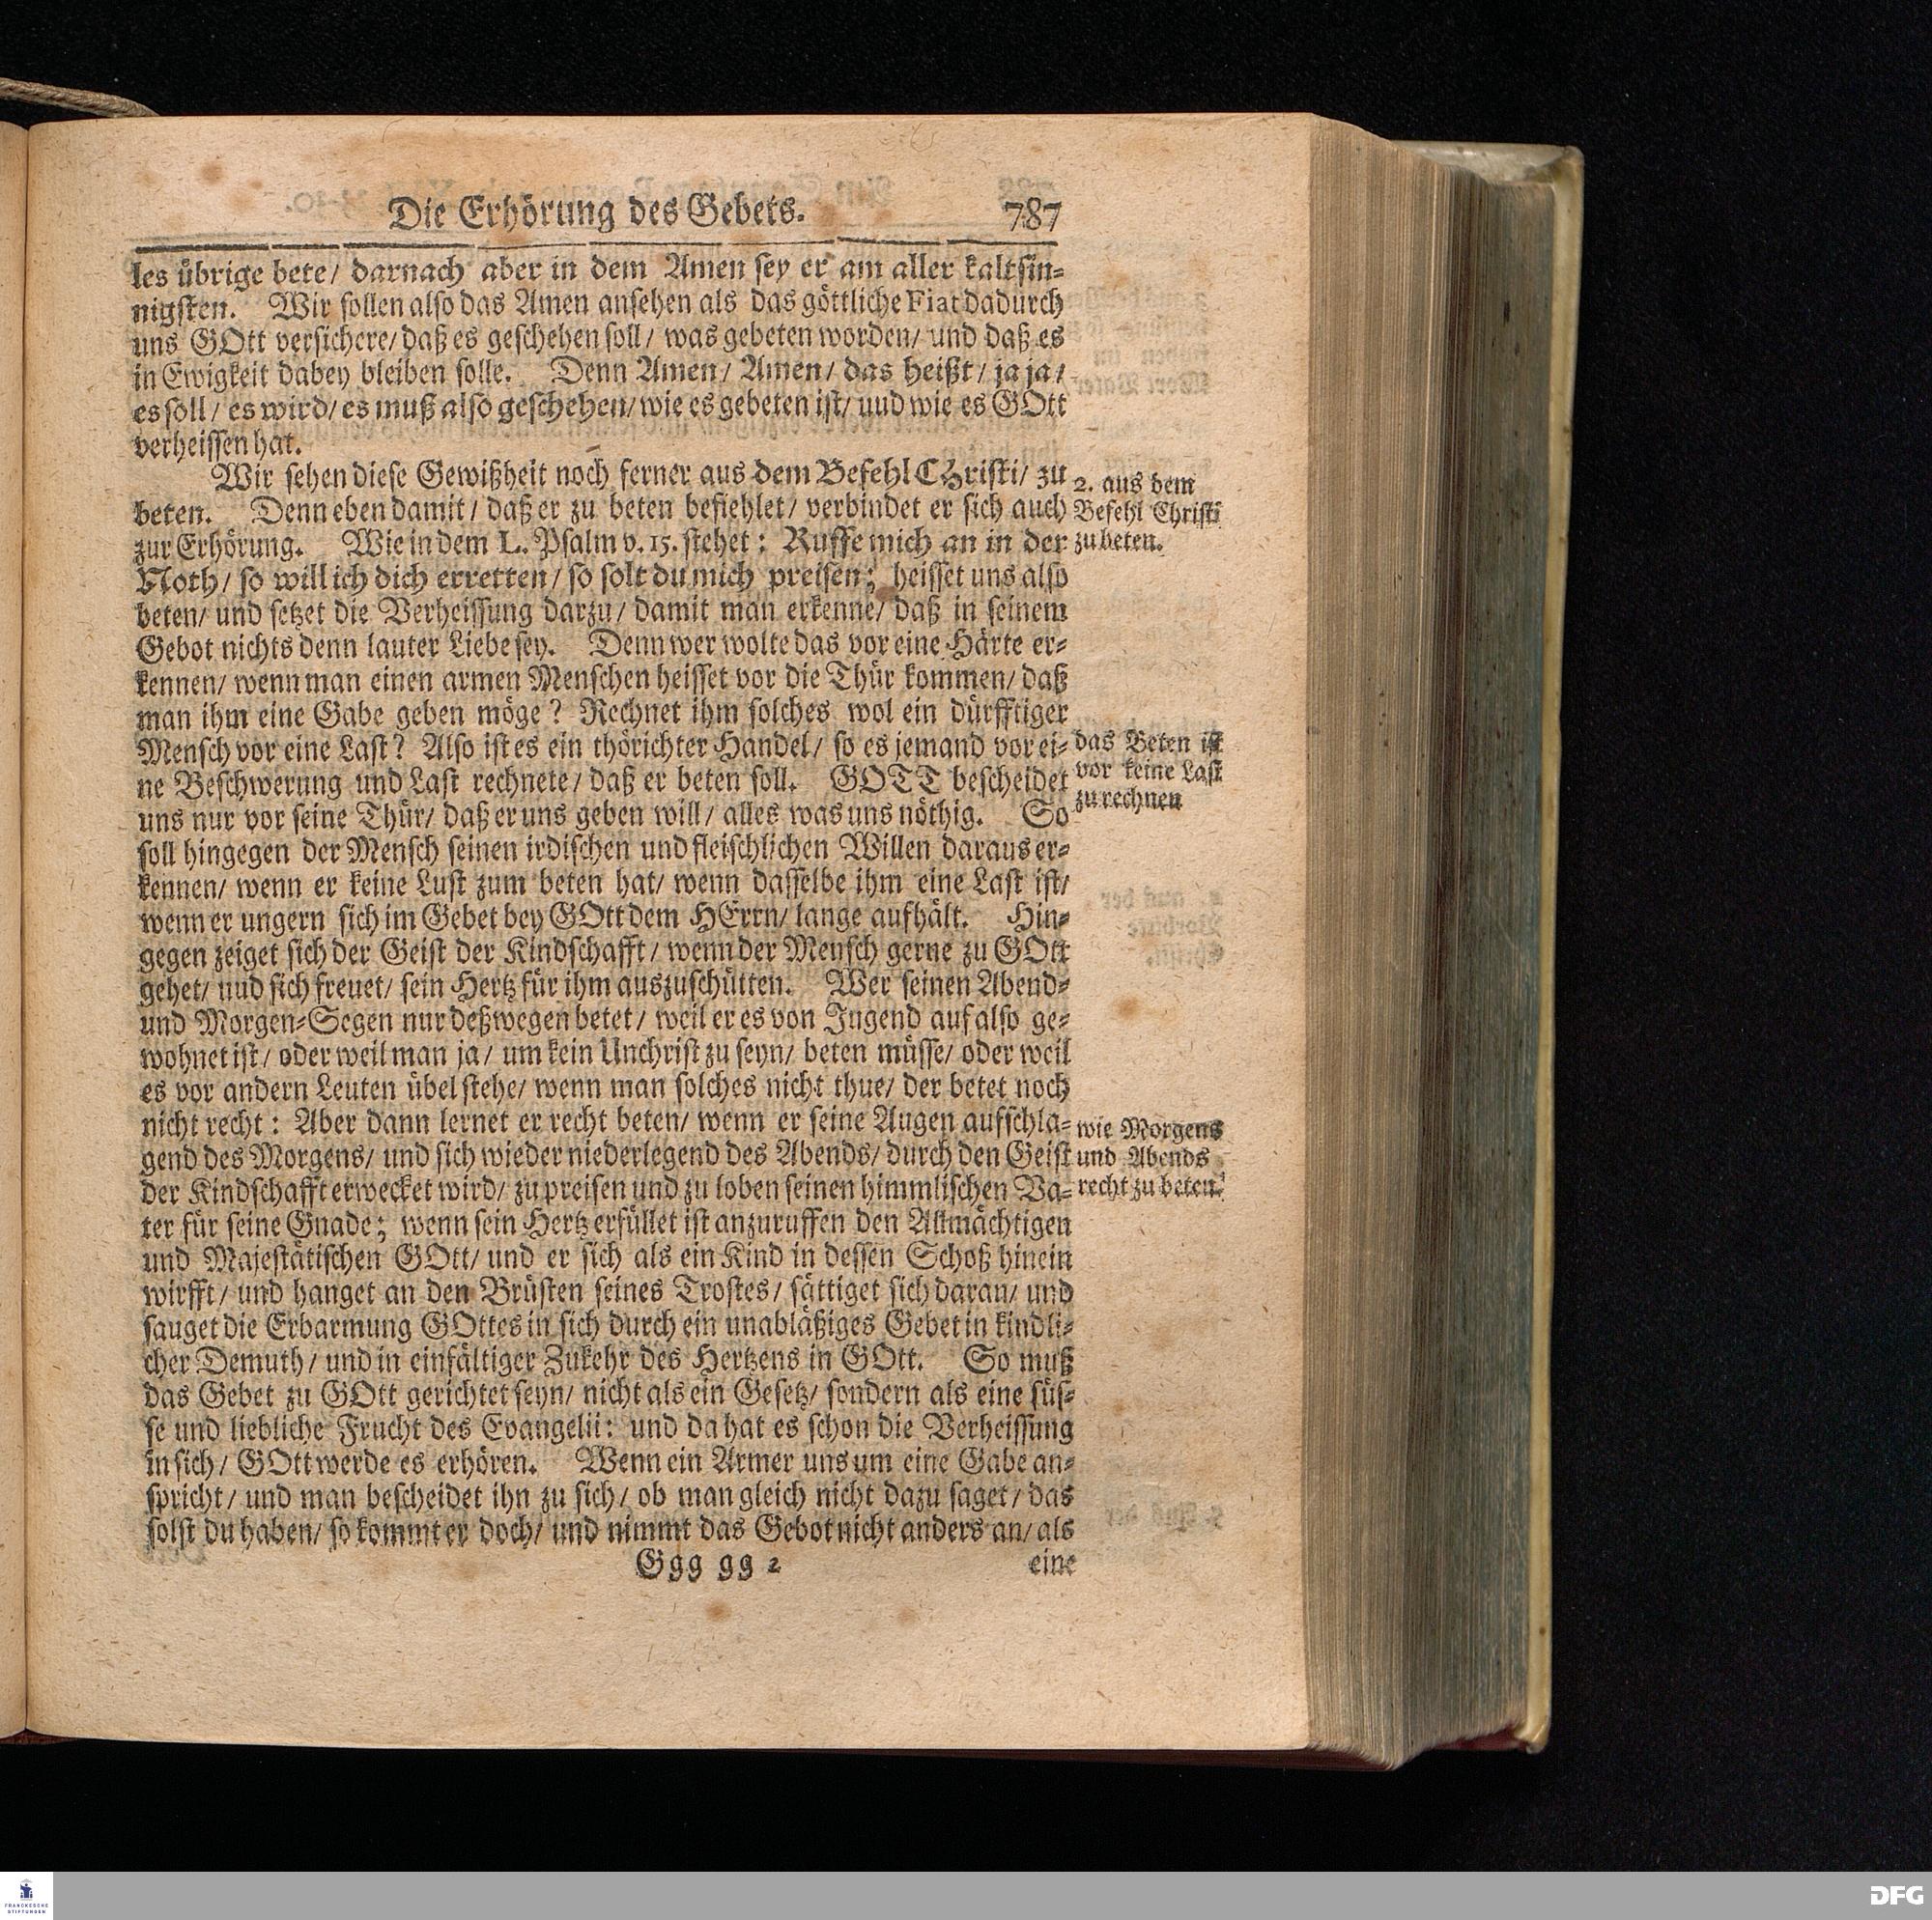 Die Erhörung des Gebets. 787
les übrige bete/ darnach aber in dem Amen sey er am aller kaltsin-
nigsten. Wir sollen also das Amen ansehen als das göttliche Fiat dadurch
uns GOtt versichere/ daß es geschehen soll/ was gebeten worden/ und daß es
in Ewigkeit dabey bleiben solle. Denn Amen/ Amen/ das heißt/ ja ja/
es soll/ es wird/ es muß also geschehen/ wie es gebeten ist/ uud wie es GOtt
verheissen hat.
Wir sehen diese Gewißheit noch ferner aus dem Befehl CHristi/ zu
beten. Denn eben damit/ daß er zu beten befiehlet/ verbindet er sich auch
zur Erhörung. Wie in dem L. Psalm v. 15. stehet: Ruffe mich an in der
Noth/ so will ich dich erretten/ so solt du mich preisen; heisset uns also
beten/ und setzet die Verheissung darzu/ damit man erkenne/ daß in seinem
Gebot nichts denn lauter Liebe sey. Denn wer wolte das vor eine Härte er-
kennen/ wenn man einen armen Menschen heisset vor die Thür kommen/ daß
man ihm eine Gabe geben möge? Rechnet ihm solches wol ein dürfftiger
Mensch vor eine Last? Also ist es ein thörichter Handel/ so es jemand vor ei-
ne Beschwerung und Last rechnete/ daß er beten soll. GOTT bescheidet
uns nur vor seine Thür/ daß er uns geben will/ alles was uns nöthig. So
soll hingegen der Mensch seinen irdischen und fleischlichen Willen daraus er-
kennen/ wenn er keine Lust zum beten hat/ wenn dasselbe ihm eine Last ist/
wenn er ungern sich im Gebet bey GOtt dem HErrn/ lange aufhält. Hin-
gegen zeiget sich der Geist der Kindschafft/ wenn der Mensch gerne zu GOtt
gehet/ uud sich freuet/ sein Hertz für ihm auszuschütten. Wer seinen Abend-
und Morgen-Segen nur deßwegen betet/ weil er es von Jugend auf also ge-
wohnet ist/ oder weil man ja/ um kein Unchrist zu seyn/ beten müsse/ oder weil
es vor andern Leuten übel stehe/ wenn man solches nicht thue/ der betet noch
nicht recht: Aber dann lernet er recht beten/ wenn er seine Augen aufschla-
gend des Morgens/ und sich wieder niederlegend des Abends/ durch den Geist
der Kindschafft erwecket wird/ zu preisen und zu loben seinen himmlischen Va-
ter für seine Gnade; wenn sein Hertz erfüllet ist anzuruffen den Allmächtigen
und Majestätischen GOtt/ und er sich als ein Kind in dessen Schoß hinein
wirfft/ und hanget an den Brüsten seines Trostes/ sättiget sich daran/ und
sauget die Erbarmung GOttes in sich durch ein unabläßiges Gebet in kindli-
cher Demuth/ und in einfältiger Zukehr des Hertzens in GOtt. So muß
das Gebet zu GOtt gerichtet seyn/ nicht als ein Gesetz/ sondern als eine süs-
se und liebliche Frucht des Evangelii: und da hat es schon die Verheissung
in sich/ GOtt werde es erhören. Wenn ein Armer uns um eine Gabe an-
spricht/ und man bescheidet ihn zu sich/ ob man gleich nicht dazu saget/ das
solst du haben/ so kommt er doch/ und nimmt das Gebot nicht anders an/ als
Ggg gg 2 eine
2. aus dem
Befehl Christi
zu beten.
das Beten ist
vor keine Last
zu rechnen
wie Morgens
und Abends
recht zu beten.
FRANCKESCHE
STIFTUNGEN
DFG